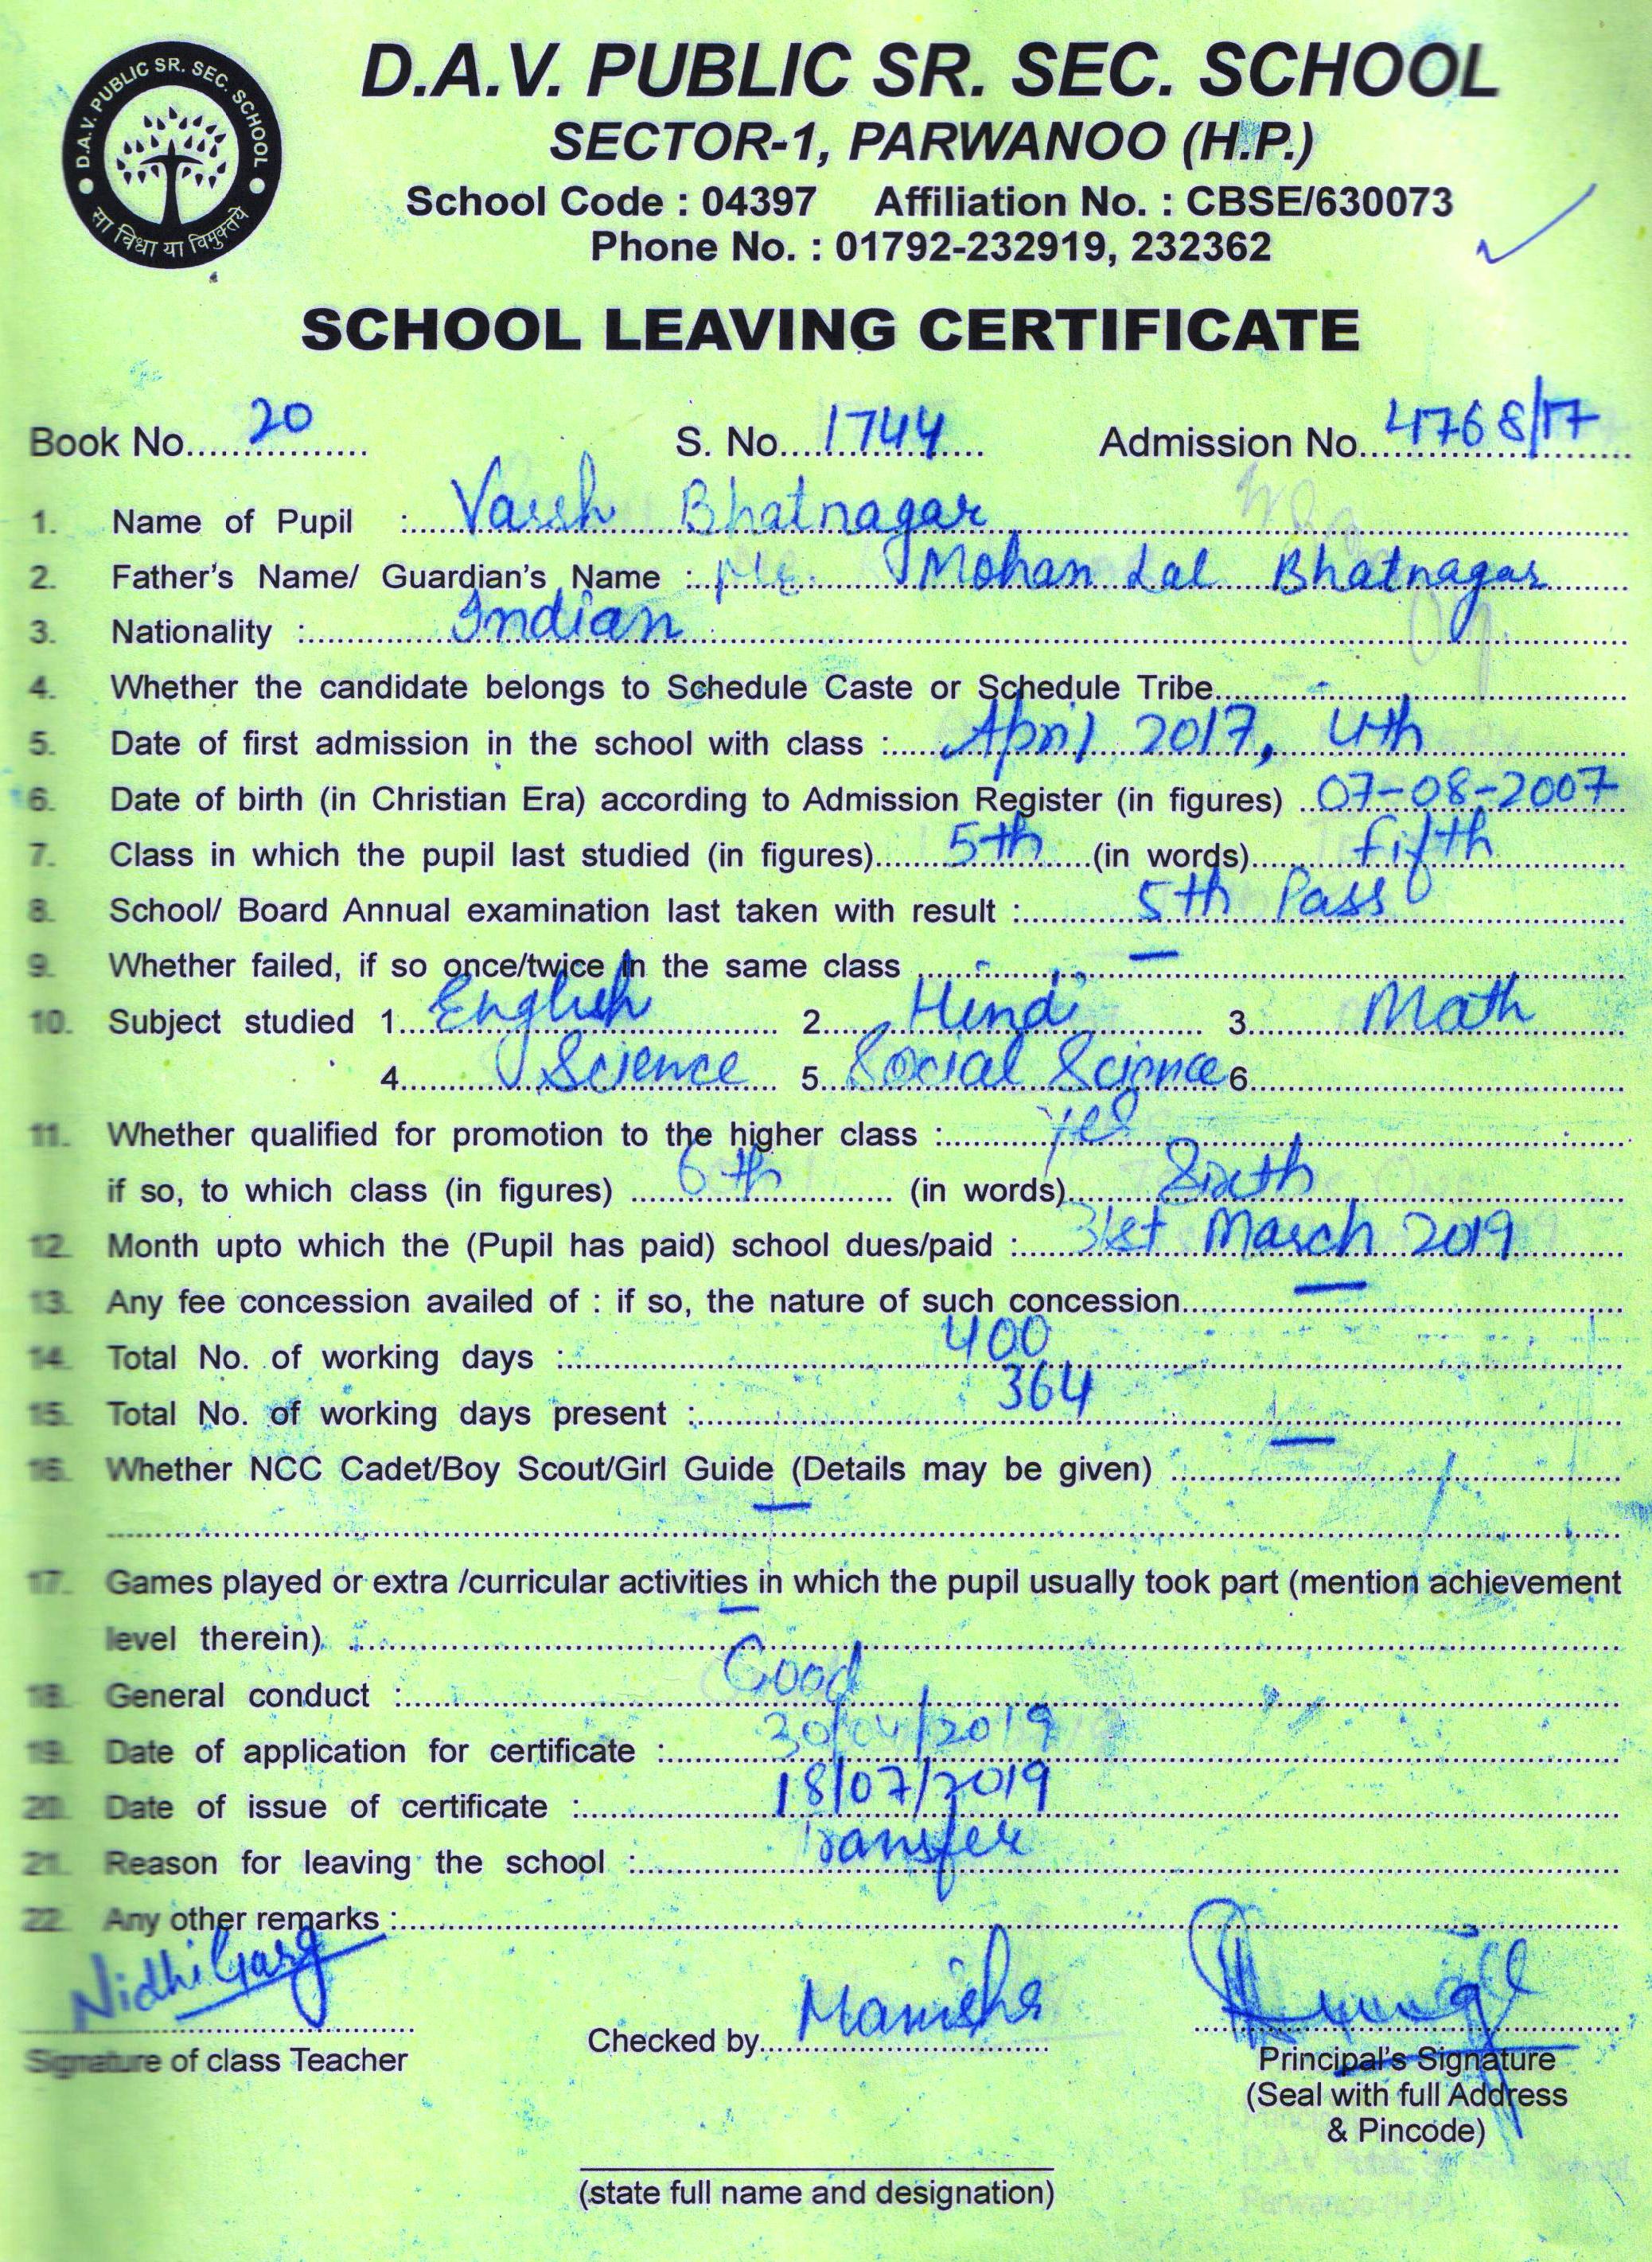 D.A.V. PUBLIC SR. SEC. SCHOOL
सा विद्या या विमुक्तये
D.A.V. PUBLIC SR. SEC. SCHOOL
SECTOR-1, PARWANOO (H.P.)
School Code : 04397 Affiliation No. : CBSE/630073
Phone No. : 01792-232919, 232362
SCHOOL LEAVING CERTIFICATE
Book No. 20 S. No. 1744 Admission No. 4768/17
1. Name of Pupil : Varsh Bhatnagar
2. Father's Name/ Guardian's Name : Mr. Mohan Lal Bhatnagar
3. Nationality : Indian
4. Whether the candidate belongs to Schedule Caste or Schedule Tribe -
5. Date of first admission in the school with class : April 2017, 4th
6. Date of birth (in Christian Era) according to Admission Register (in figures) 07-08-2007
7. Class in which the pupil last studied (in figures) 5th (in words) fifth
8. School/ Board Annual examination last taken with result : 5th Pass
9. Whether failed, if so once/twice in the same class —
10. Subject studied 1. English 2. Hindi 3. Math
4. Science 5. Social Science 6.
11. Whether qualified for promotion to the higher class : yes
if so, to which class (in figures) 6th (in words) Sixth
12. Month upto which the (Pupil has paid) school dues/paid : 31st March 2019
13. Any fee concession availed of : if so, the nature of such concession —
14. Total No. of working days : 400
15. Total No. of working days present : 364
16. Whether NCC Cadet/Boy Scout/Girl Guide (Details may be given) —
—
17. Games played or extra /curricular activities in which the pupil usually took part (mention achievement
level therein) —
18. General conduct : Good
19. Date of application for certificate : 30/04/2019
20. Date of issue of certificate : 18/07/2019
21. Reason for leaving the school : Transfer
22. Any other remarks :
Nidhi Garg
Signature of class Teacher
Checked by Manisha
Principal's Signature
(Seal with full Address
& Pincode)
(state full name and designation)